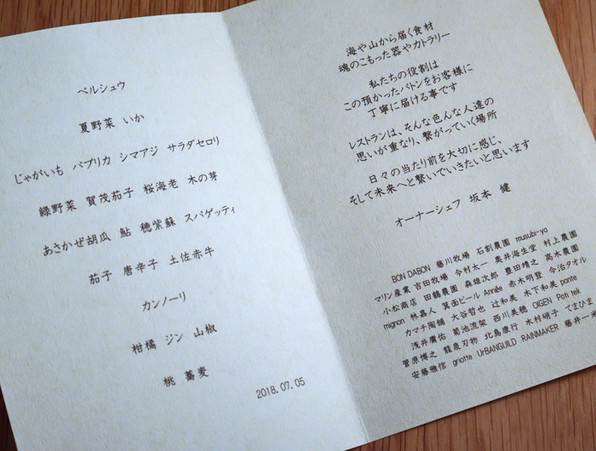 ペルシュウ
夏野菜 いか
じゃがいも パプリカ シマアジ サラダセロリ
緑野菜 賀茂茄子 桜海老 木の芽
あさかぜ胡瓜 鮎 穂紫蘇 スパゲッティ
茄子 唐辛子 土佐赤牛
カンノーリ
柑橘 ジン 山椒
桃 蕎麦
2018.07.05
海や山から届く食材
魂のこもった器やカトラリー
私たちの役割は
この預かったバトンをお客様に
丁寧に届ける事です
レストランは、そんな色んな人達の
思いが重なり、繋がっていく場所
日々の当たり前を大切に感じ、
そして未来へと繋いでいきたいと思います
オーナーシェフ 坂本 健
BON DABON 藤川牧場 石割農園 musubi-ya
マリン産業 吉田牧場 今村太一 奥井海生堂 村上農園
小松商店 田鶴農園 森雄次郎 豊田靖之 高木農園
mignon 林農人 箕面ビール Année 赤木明登 今治タオル
カマチ陶舗 大谷哲也 辻和美 木下和美 ponte
浅井庸佑 菊池流架 西川美穂 OIGEN Poti tek
菅原博之 龍泉刃物 北島康行 木村明子 てまひま
安藤雅信 griotte UrBANGUILD RAINMAKER 藤井一米